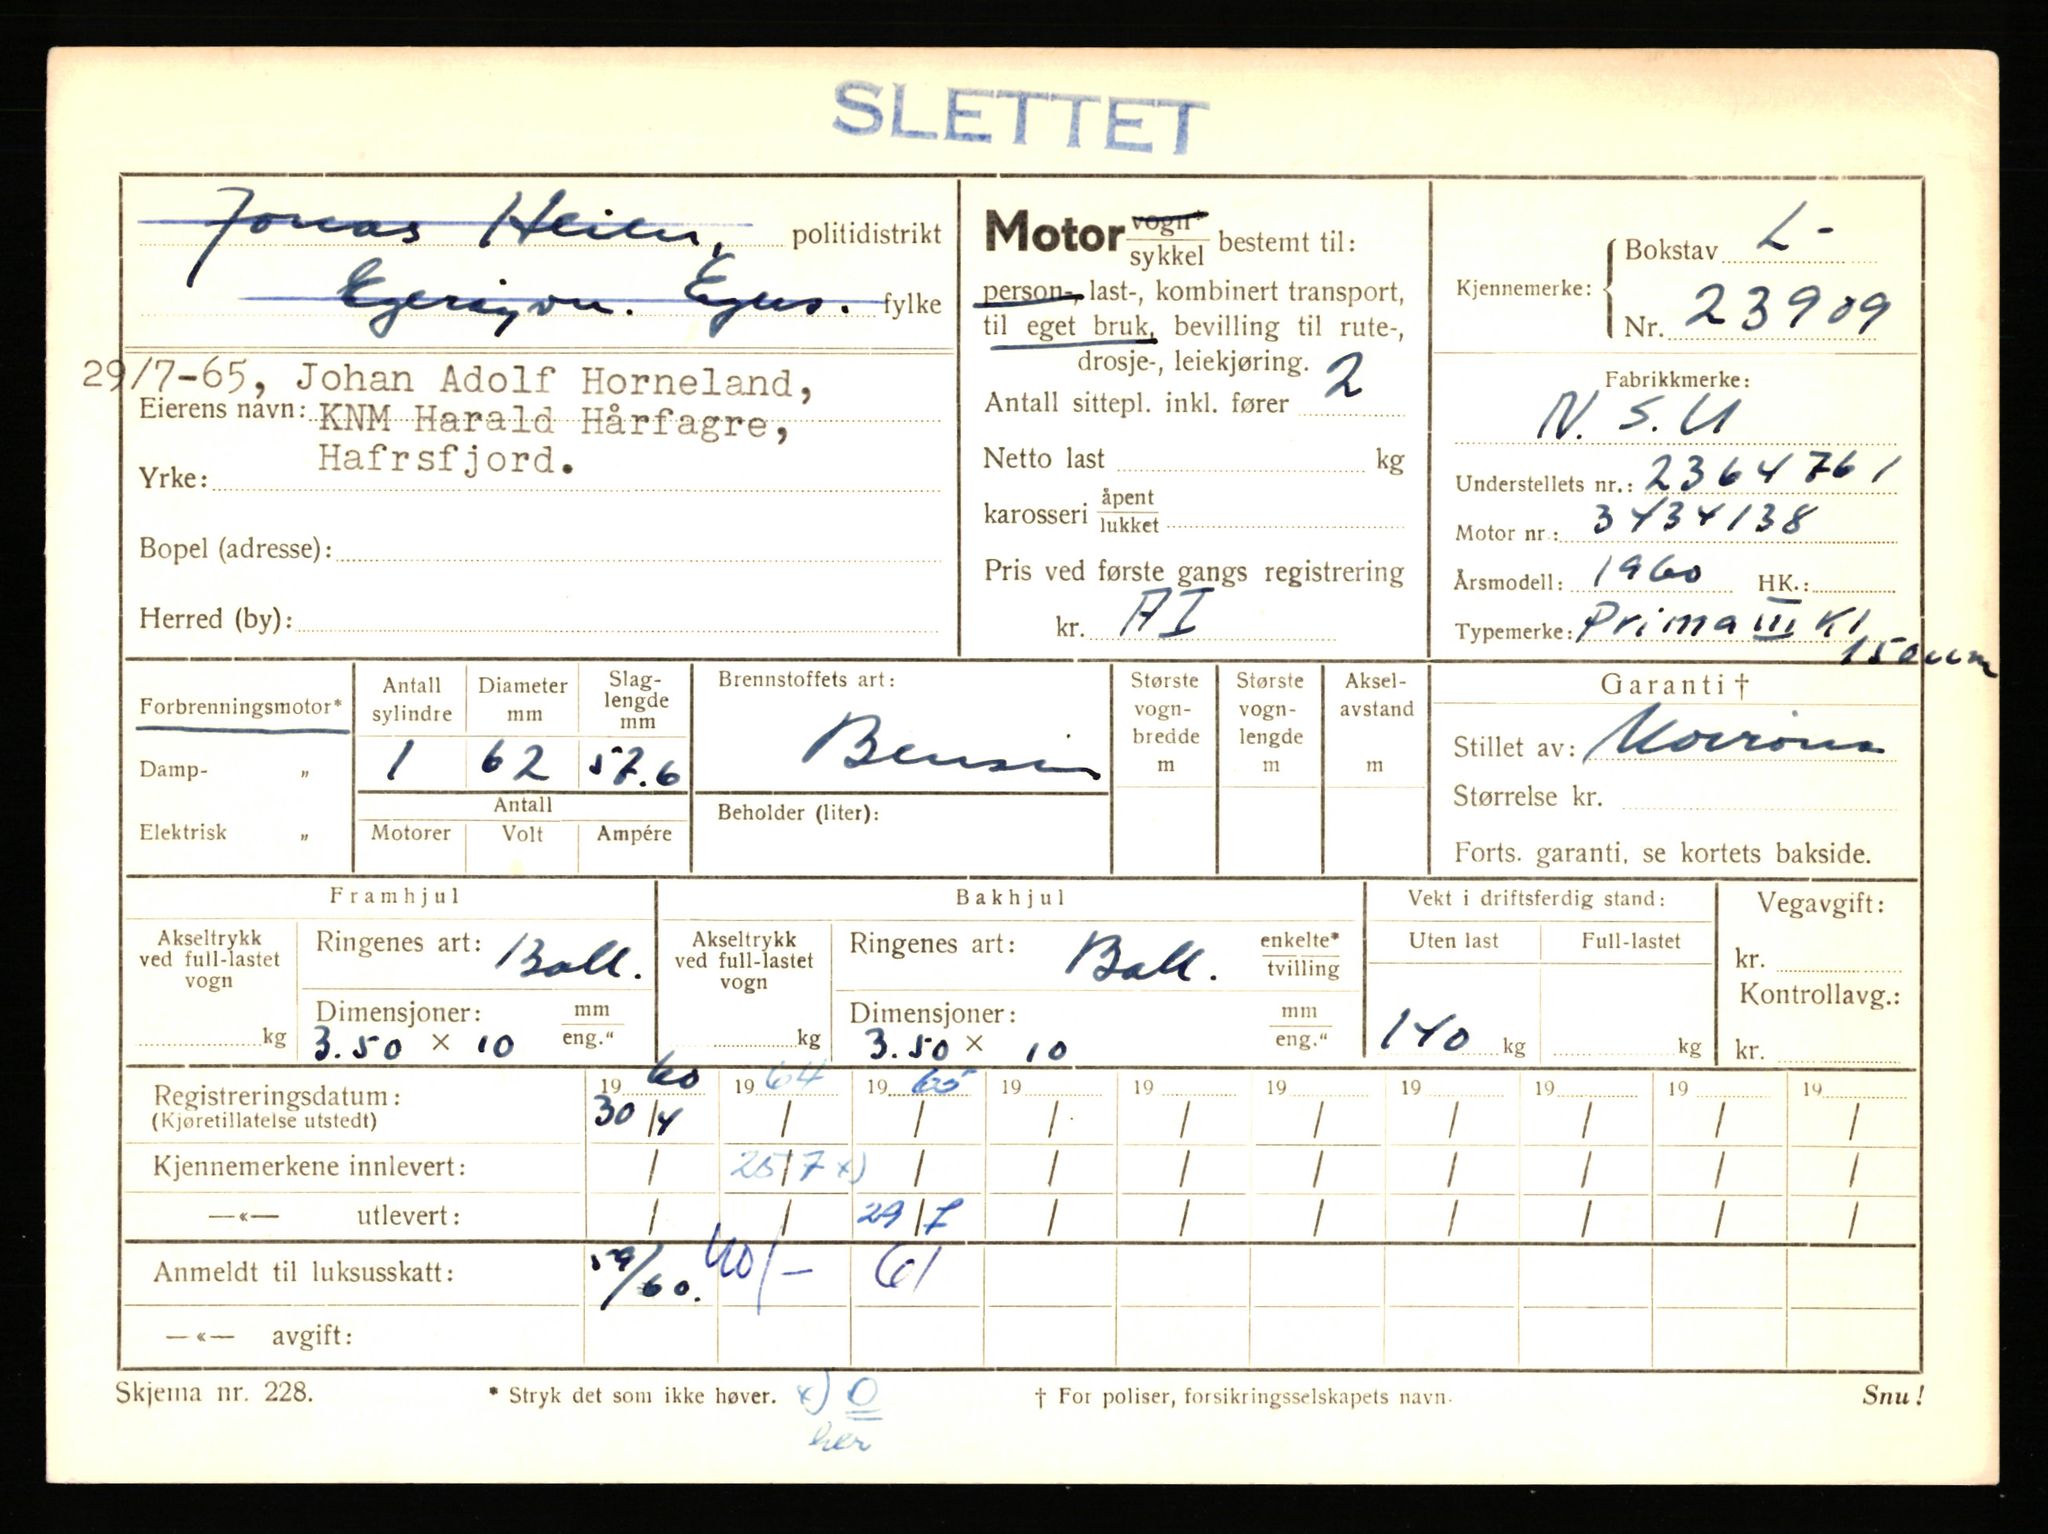 SLETTET
Jonas Heien, politidistrikt
Egersgvn. Egers. fylke
29/7-65, Johan Adolf Horneland,
Eierens navn: KNM Harald Hårfagre,
Hafrsfjord.
Yrke:
Bopel (adresse):
Herred (by):
Motor vogn* sykkel bestemt til:
person-, last-, kombinert transport,
til eget bruk, bevilling til rute-,
drosje-, leiekjøring.
Antall sittepl. inkl. fører 2
Netto last kg
karosseri åpent lukket
Pris ved første gangs registrering
kr. AI
Kjennemerke: Bokstav L-
Nr. 23909
Fabrikkmerke:
N.S.U
Understellets nr.: 2364761
Motor nr.: 3434138
Årsmodell: 1960 HK.:
Typemerke: Prima III Kl
150 ccm
Forbrenningsmotor*
Damp- „
Elektrisk „
Antall sylindre Diameter mm Slaglengde mm
1 62 57.6
Antall
Motorer Volt Ampére
Brennstoffets art:
Bensin
Beholder (liter):
Største vognbredde m
Største vognlengde m
Akselavstand m
Garanti †
Stillet av:
Størrelse kr.
Forts. garanti, se kortets bakside.
Framhjul
Akseltrykk ved full-lastet vogn kg
Ringenes art: Ball.
Dimensjoner: mm eng."
3.50 × 10
Bakhjul
Akseltrykk ved full-lastet vogn kg
Ringenes art: Ball. enkelte* tvilling
Dimensjoner: mm eng."
3.50 × 10
Vekt i driftsferdig stand:
Uten last Full-lastet
140 kg kg
Vegavgift:
kr.
Kontrollavg.:
kr.
Registreringsdatum: 1960 1964 1965 19 19 19 19 19 19 19
(Kjøretillatelse utstedt) 30/4 / / / / / / / / /
Kjennemerkene innlevert: / 25/7 x) / / / / / / / /
—«— utlevert: / / 29/7 / / / / / / /
Anmeldt til luksusskatt: 59/60. 40/- 61
—«— avgift:
Skjema nr. 228. * Stryk det som ikke høver. x) 0 † For poliser, forsikringsselskapets navn. Snu!
her